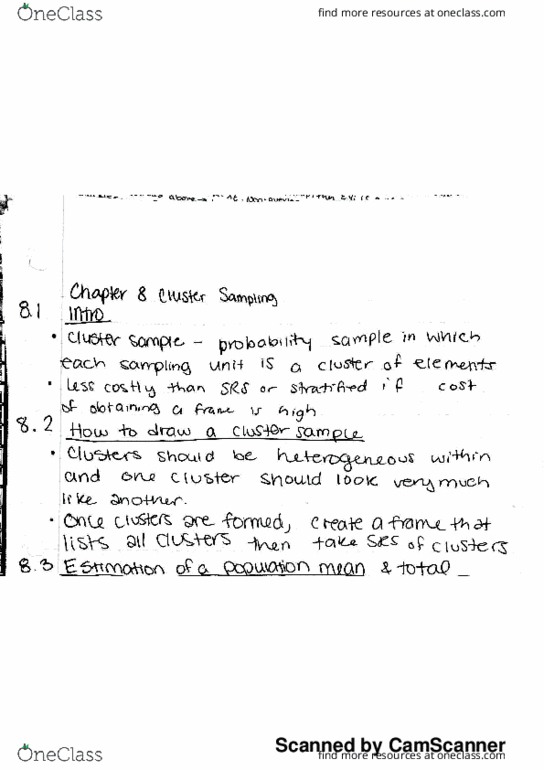 OneClass
find more resources at oneclass.com
above
Chapter 8 Cluster Sampling
8.1 Intro
• Cluster sample - probability sample in which
each sampling unit is a cluster of elements
• Less costly than SRS or stratified if cost
of obtaining a frame is high
8.2 How to draw a cluster sample
• Clusters should be heterogeneous within
and one cluster should look very much
like another.
• Once clusters are formed, create a frame that
lists all clusters then take SRS of clusters
8.3 Estimation of a population mean & total
Scanned by CamScanner
OneClass
find more resources at oneclass.com